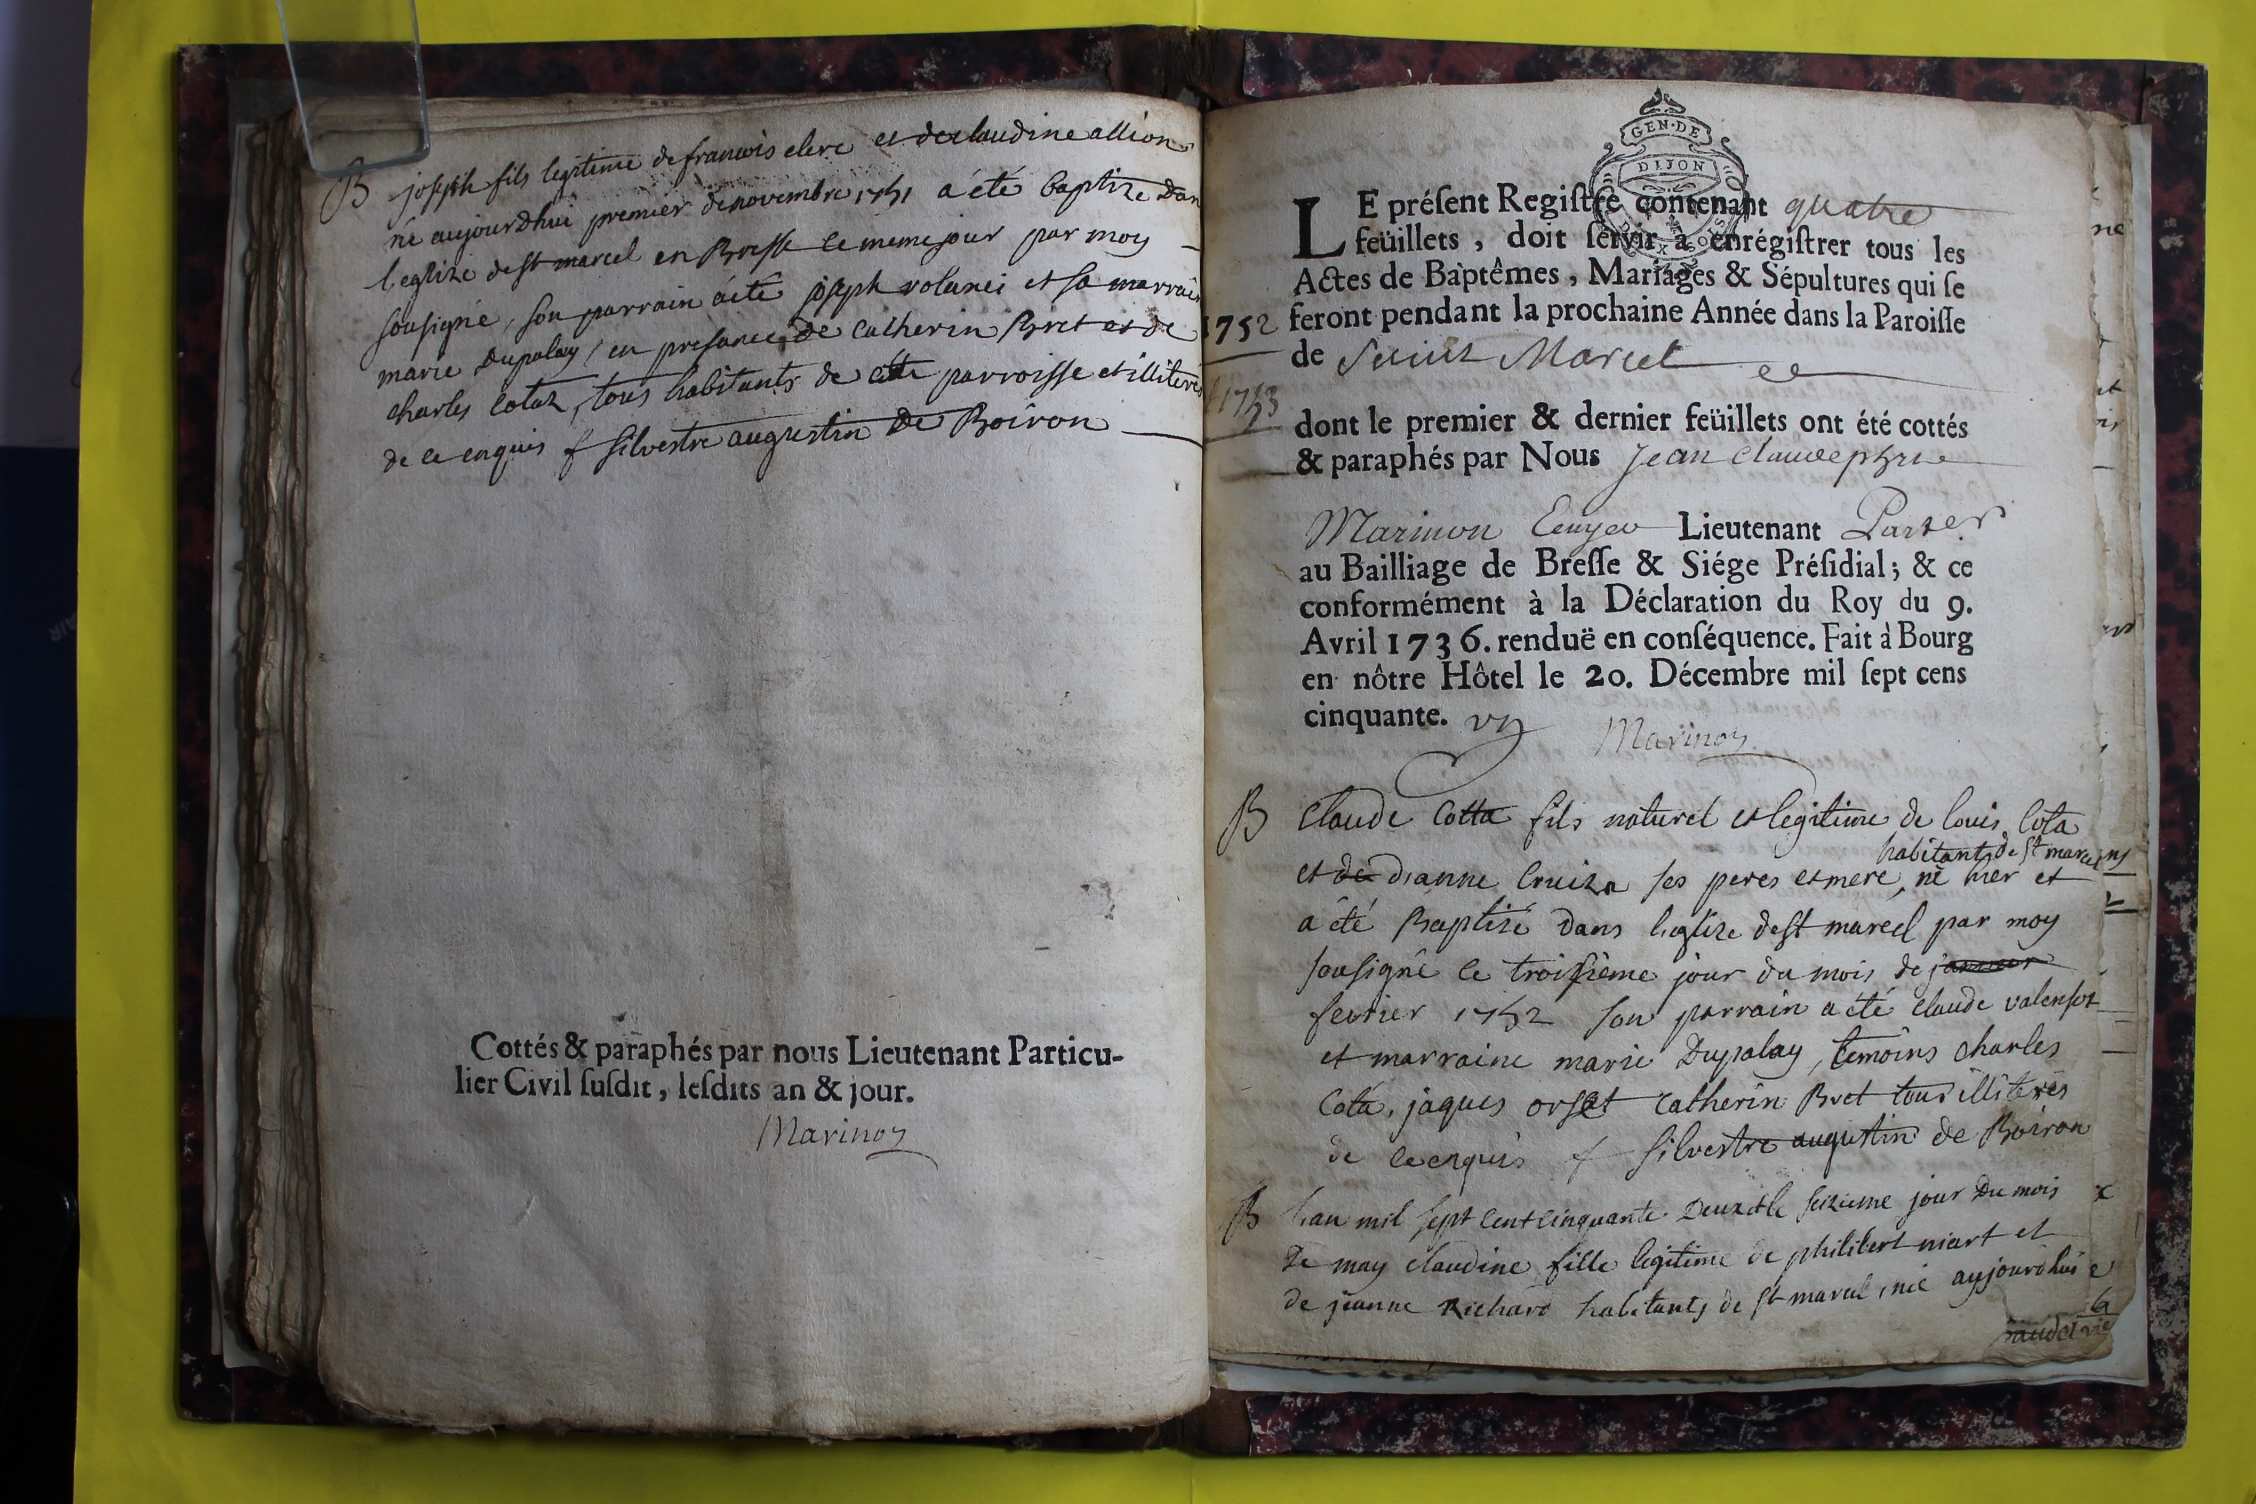 B joseph fils legitime de francois clerc et de claudine allion
né aujourdhui premier de novembre 1751 a été baptize dan
leglize de st marcel en Bresse le meme jour par moy
sousigné, son parrain a été joseph volanei et sa marrain
marie Dupalay, en presance de catherin Bret et de
charles cotaz, tous habitants de cette parroisse et illiterés
de ce enquis f silvestre augustin de Boiron
Cottés & paraphés par nous Lieutenant Particu-
lier Civil ſuſdit, leſdits an & jour.
Marinon
GEN·DE
DIJON
LE préſent Regiſtre contenant quatre
feüillets, doit ſervir à enrégiſtrer tous les
Actes de Baptêmes, Mariages & Sépultures qui ſe
feront pendant la prochaine Année dans la Paroiſſe
1752
de Saint Marcel
1753
dont le premier & dernier feüillets ont été cottés
& paraphés par Nous Jean Claude
Marinon Ecuyer Lieutenant Parter
au Bailliage de Breſſe & Siége Préſidial; & ce
conformément à la Déclaration du Roy du 9.
Avril 1736. renduë en conſéquence. Fait à Bourg
en nôtre Hôtel le 20. Décembre mil ſept cens
cinquante. un
Marinon
B Claude Cotta fils naturel et legitime de louis Cota
habitant de St marcel
et de dianne Cruiza ses peres et mere, né hier et
a été Baptisé dans leglize de st marcel par moy
sousigné le troisième jour du mois de janvier
fevrier 1752 son parrain a été claude valensot
et marraine marie Dupalay, temoins charles
Cota, jaques orset catherin Bret tous illiterés
de ce enquis f silvestre augustin de Boiron
B lan mil sept cent cinquante Deux et le seizieme jour Du mois
De may claudine fille legitime de philibert niart et
de jeanne Richard habitants de st marcel, née aujourdhui